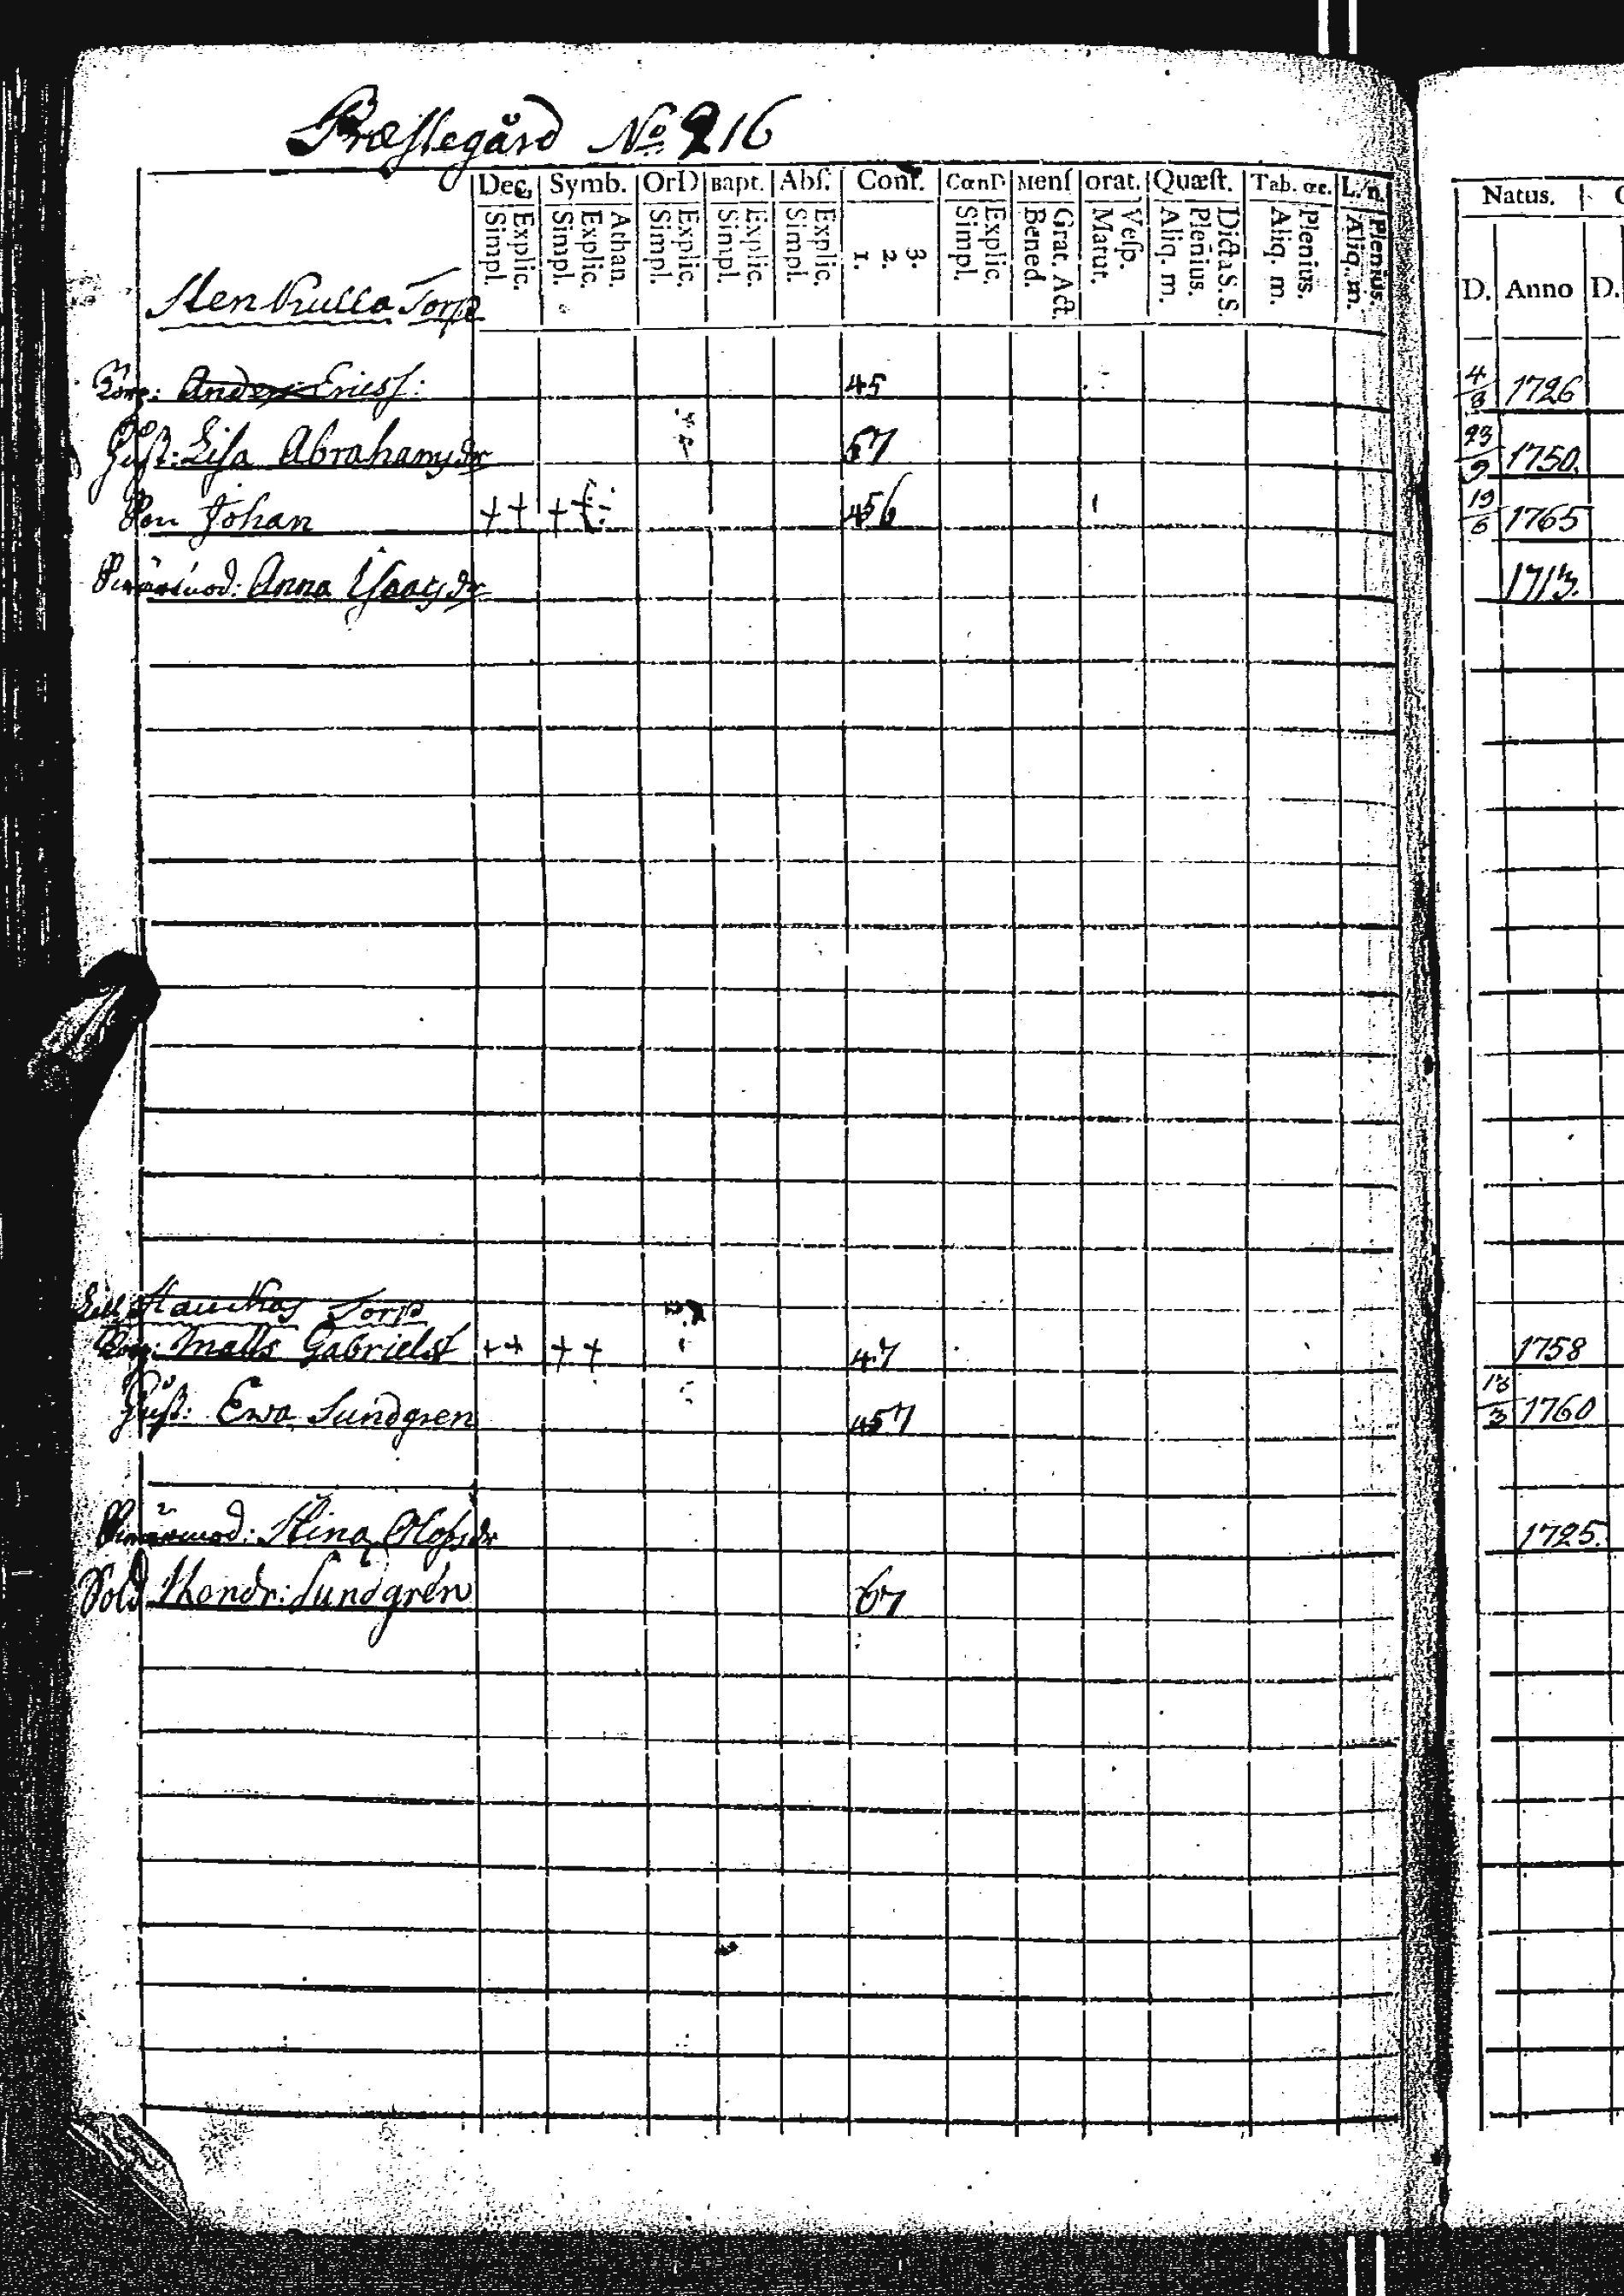 Præstegård No 216
Dec. Symb. OrD Bapt. Abſ. Conf. CœnD Menſ orat. Quæſt. Tab. œc. L. n. Natus.
Simpl. Explic. Simpl. Explic. Athan. Simpl. Explic. Simpl. Explic. Simpl. Explic. 1. 2. 3. Simpl. Explic. Bened. Grat. Act. Matut. Veſp. Aliq. m. Plenius. Dicta S. S. Aliq. m. Plenius. Aliq. m. Plenius. D. Anno D.
Stenkulla Torp
Torp: Anders Ericsſ: 45 4/8 1726
Huſt: Liſa Abrahamsdr 67 23/9 1750.
Son Johan ++ ++ 456 19/6 1765
Swärmod: Anna Iſaacsdr 1713.
Torp
Torp: Matts Gabrielsſ ++ ++ 47 1758
Huſt: Ewa Sundgren 457 18/3 1760
Swärmod: Stina Olofsdr 1725.
Sold Kondr: Sundgrén 67